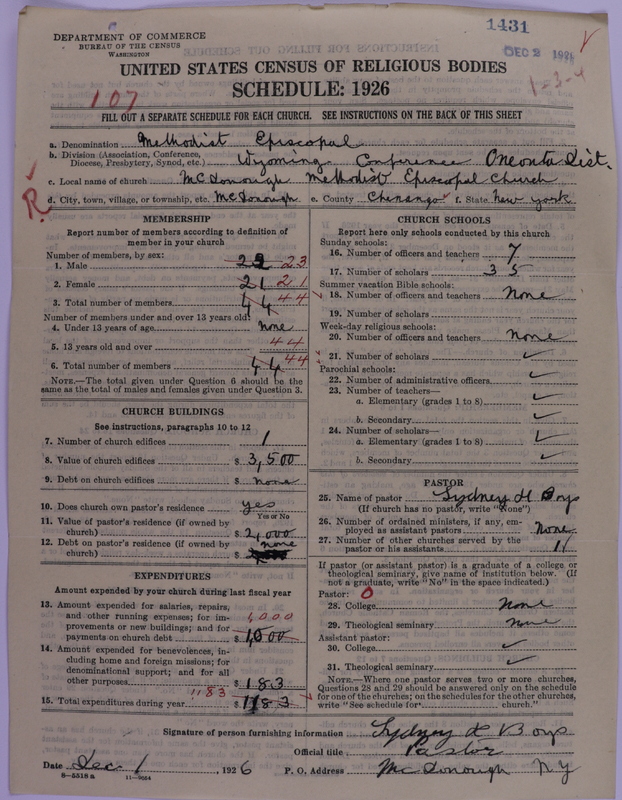 1431
DEC 2 1926
DEPARTMENT OF COMMERCE
BUREAU OF THE CENSUS
WASHINGTON
UNITED STATES CENSUS OF RELIGIOUS BODIES
SCHEDULE: 1926
107
1-3-4
FILL OUT A SEPARATE SCHEDULE FOR EACH CHURCH. SEE INSTRUCTIONS ON THE BACK OF THIS SHEET
a. Denomination Methodist Episcopal
b. Division (Association, Conference, Diocese, Presbytery, Synod, etc.) Wyoming Conference Oneonta Dist.
c. Local name of church McDonough Methodist Episcopal Church
R
d. City, town, village, or township, etc. McDonough e. County Chenango f. State New York
MEMBERSHIP
Report number of members according to definition of
member in your church
Number of members, by sex:
1. Male 23
2. Female 21 21
3. Total number of members 44 44
Number of members under and over 13 years old:
4. Under 13 years of age None
5. 13 years old and over 44
6. Total number of members 44 44
NOTE.—The total given under Question 6 should be the
same as the total of males and females given under Question 3.
CHURCH BUILDINGS
See instructions, paragraphs 10 to 12
7. Number of church edifices 1
8. Value of church edifices $ 3,500
9. Debt on church edifices $ None
10. Does church own pastor's residence yes
Yes or No
11. Value of pastor's residence (if owned by
church) $ 2,000
12. Debt on pastor's residence (if owned by
church) $ none
EXPENDITURES
Amount expended by your church during last fiscal year
13. Amount expended for salaries, repairs,
and other running expenses; for im-
provements or new buildings; and for
payments on church debt $ 1000 1,000
14. Amount expended for benevolences, in-
cluding home and foreign missions; for
denominational support; and for all
other purposes $ 183
15. Total expenditures during year $ 1183 1183
CHURCH SCHOOLS
Report here only schools conducted by this church
Sunday schools:
16. Number of officers and teachers 7
17. Number of scholars 35
Summer vacation Bible schools:
18. Number of officers and teachers None
19. Number of scholars
Week-day religious schools:
20. Number of officers and teachers None
21. Number of scholars ✓
Parochial schools:
22. Number of administrative officers ✓
23. Number of teachers—
a. Elementary (grades 1 to 8) ✓
b. Secondary ✓
24. Number of scholars—
a. Elementary (grades 1 to 8) ✓
b. Secondary ✓
PASTOR
25. Name of pastor Sydney H Boys
(If church has no pastor, write "None")
26. Number of ordained ministers, if any, em-
ployed as assistant pastors None
27. Number of other churches served by the
pastor or his assistants
If pastor (or assistant pastor) is a graduate of a college or
theological seminary, give name of institution below. (If
not a graduate, write "No" in the space indicated.)
Pastor: 0
28. College None
29. Theological seminary None
Assistant pastor:
30. College ✓
31. Theological seminary ✓
NOTE.—Where one pastor serves two or more churches,
Questions 28 and 29 should be answered only on the schedule
for one of the churches; on the schedules for the other churches,
write "See schedule for church."
Signature of person furnishing information Sydney H Boys
Official title Pastor
Date Dec 1, 1926 P. O. Address McDonough NY
8—5518 a 11—9664